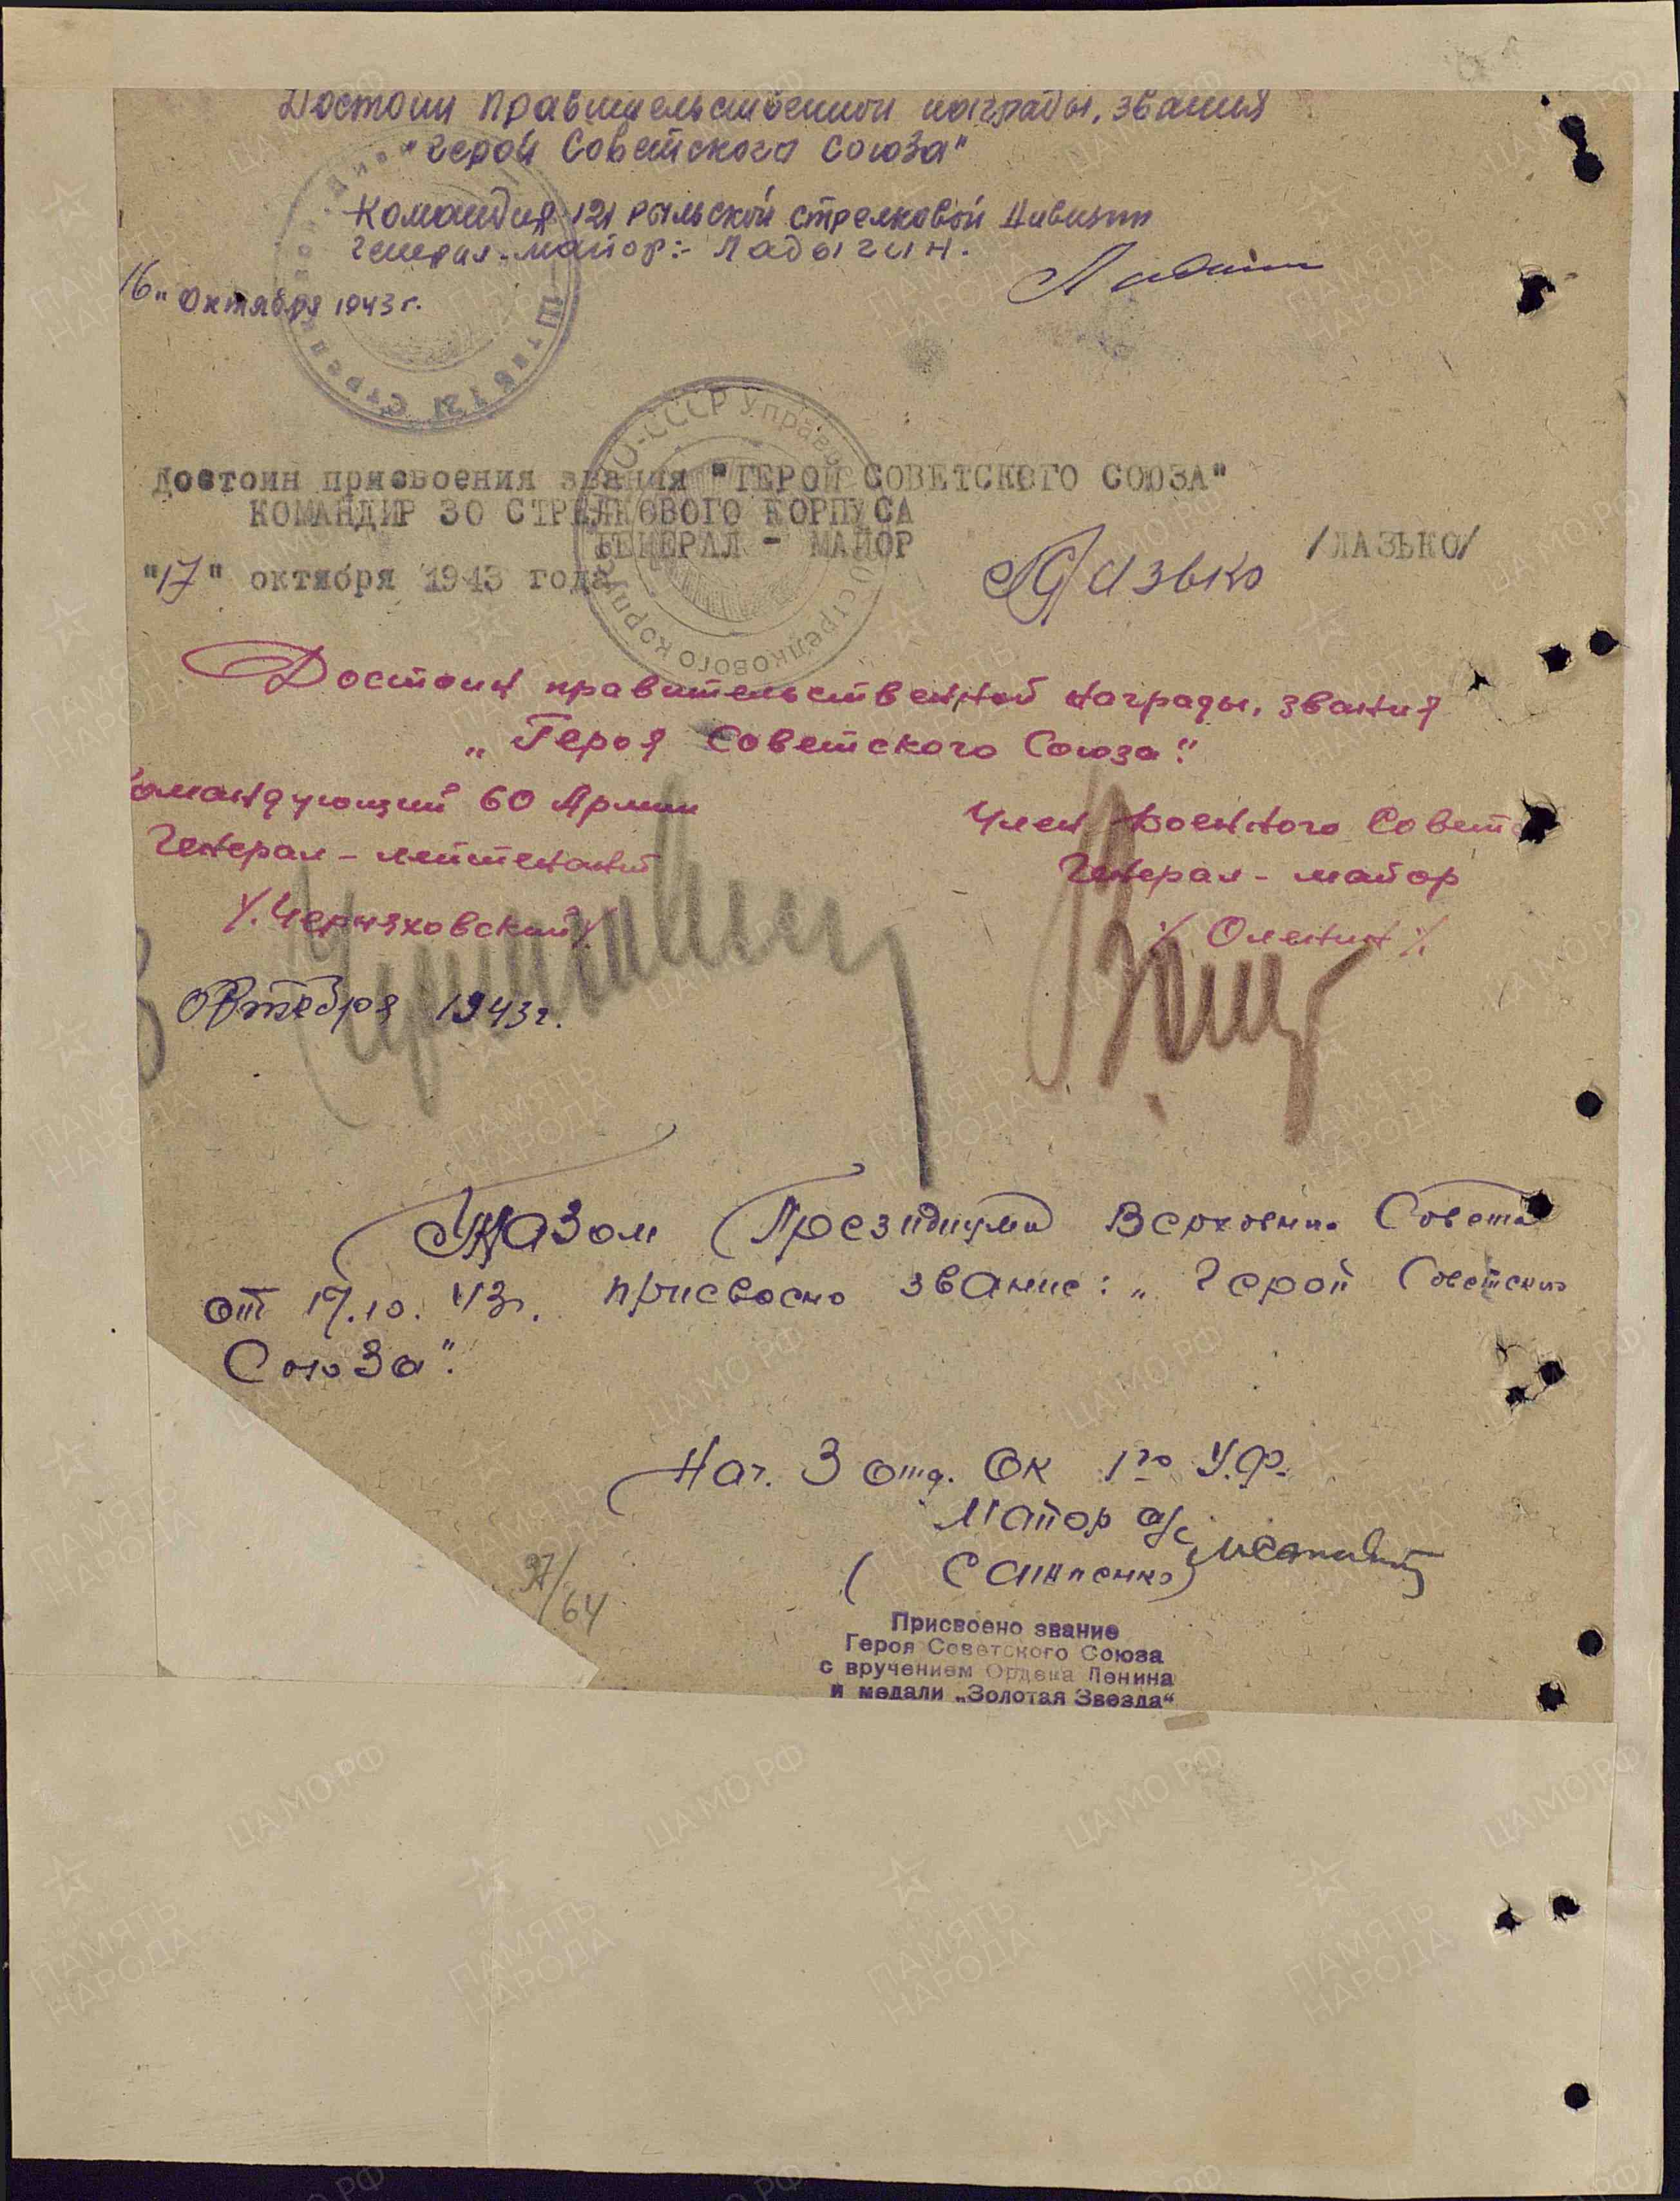 Достоин правительственной награды, звания
"Герой Советского Союза"
Командир 121 рыльской стрелковой дивизии
генерал-майор:- Ладыгин.
16" Октября 1943 г.
достоин присвоения звания "ГЕРОЙ СОВЕТСКОГО СОЮЗА"
КОМАНДИР 30 СТРЕЛКОВОГО КОРПУСА
ГЕНЕРАЛ - МАЙОР
/ЛАЗЬКО/
"17" октября 1943 года
Лазько
Достоин правительственной награды, звания
„Героя Советского Союза".
Командующий 60 Армии
Генерал-лейтенант
/.Черняховский/.
Член Военного Совета
Генерал-майор
/. Оленин /.
Октября 1943 г.
Указом Президиума Верховн. Совета
от 17.10.43г. присвоено звание: „Герой Советского
Союза".
Нач. 3 отд. ОК 1го У.Ф.
Майор а/с
(Саппенко)
37/64
Присвоено звание
Героя Советского Союза
с вручением Ордена Ленина
и медали „Золотая Звезда"
ПАМЯТЬ НАРОДА
ЦАМО.РФ